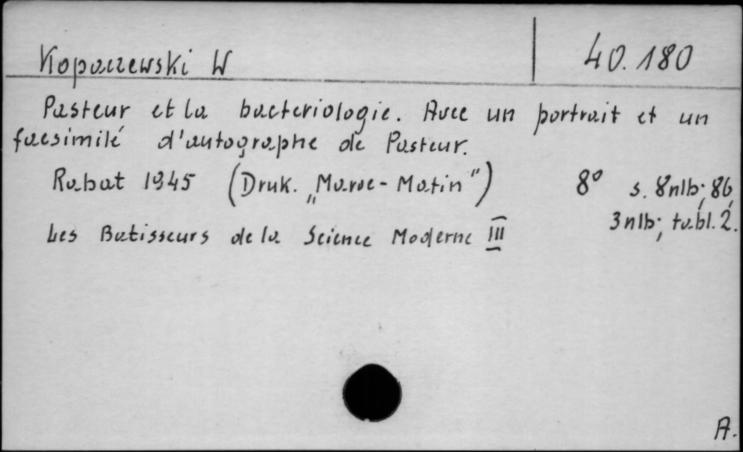 Kopaczewski W
40.180
Pasteur et la bacteriologie. Avec un portrait et un
facsimilé d'autographe de Pasteur.
Rabat 1945 (Druk. „Maroc-Matin") 8° s. 8nlb; 86,
3nlb; tabl. 2.
Les Batisseurs de la Science Moderne III
A.